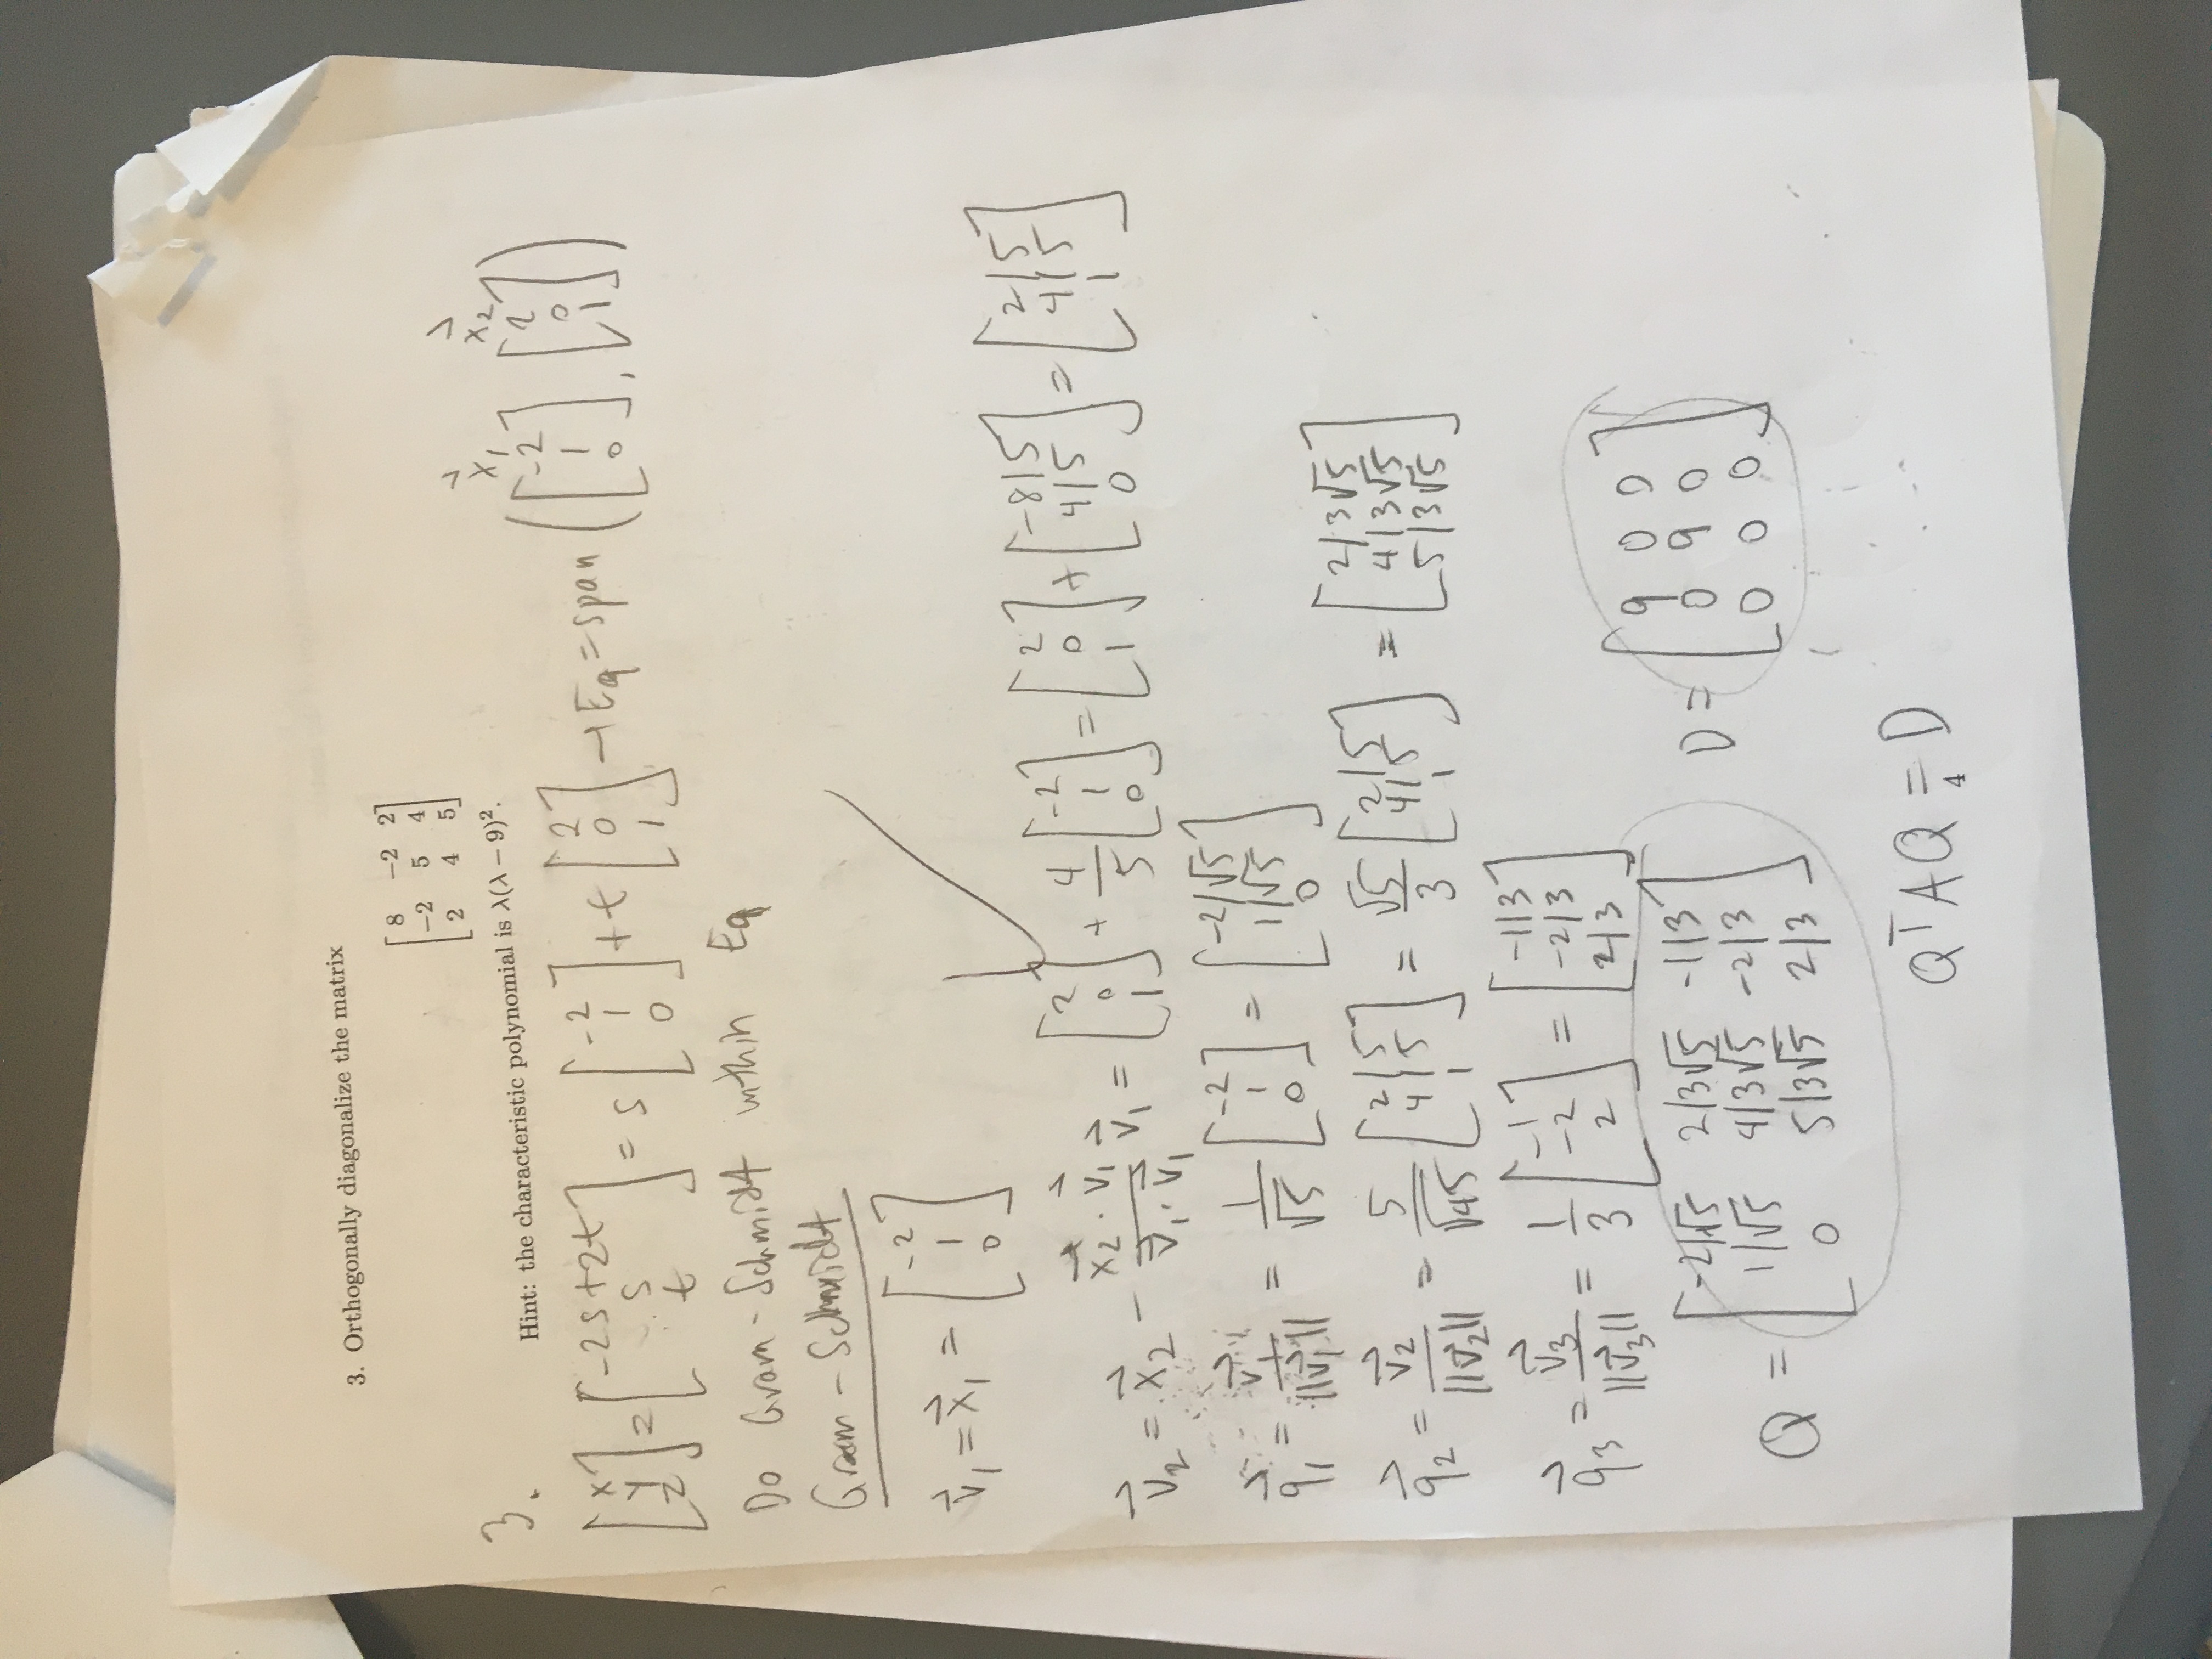 3. Orthogonally diagonalize the matrix
[ 8 −2 2
−2 5 4
2 4 5 ]
Hint: the characteristic polynomial is λ(λ − 9)².
3.
[x y z] = [-2s+2t s t] = s [-2 1 0] + t [2 0 1] → E9 = span ( x⃗1 [-2 1 0], x⃗2 [2 0 1] )
Do Gram-Schmidt within E9
Gram-Schmidt
v⃗1 = x⃗1 = [-2 1 0]
v⃗2 = x⃗2 - (x⃗2 · v⃗1 / v⃗1 · v⃗1) v⃗1 = [2 0 1] + 4/5 [-2 1 0] = [2 0 1] + [-8/5 4/5 0] = [2/5 4/5 1]
q⃗1 = v⃗1 / ||v⃗1|| = 1/√5 [-2 1 0] = [-2/√5 1/√5 0]
q⃗2 = v⃗2 / ||v⃗2|| = 5/√45 [2/5 4/5 1] = √5/3 [2/5 4/5 1] = [2/3√5 4/3√5 5/3√5]
q⃗3 = v⃗3 / ||v⃗3|| = 1/3 [-1 -2 2] = [-1/3 -2/3 2/3]
Q = [ -2/√5 2/3√5 -1/3
1/√5 4/3√5 -2/3
0 5/3√5 2/3 ]
D = [ 9 0 0
0 9 0
0 0 0 ]
QᵀAQ = D
4